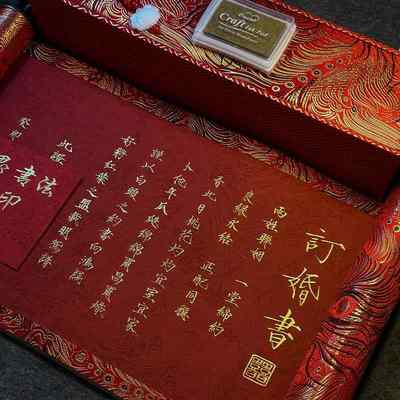 Craft Ink Pad
訂婚書
两姓聯姻 一堂締約
良緣永結 匹配同稱
看此日桃花灼灼宜室宜家
卜他年瓜瓞綿綿爾昌爾熾
謹以白頭之約書向鴻箋
好將紅葉之盟載明鴛譜
此證
書法
印